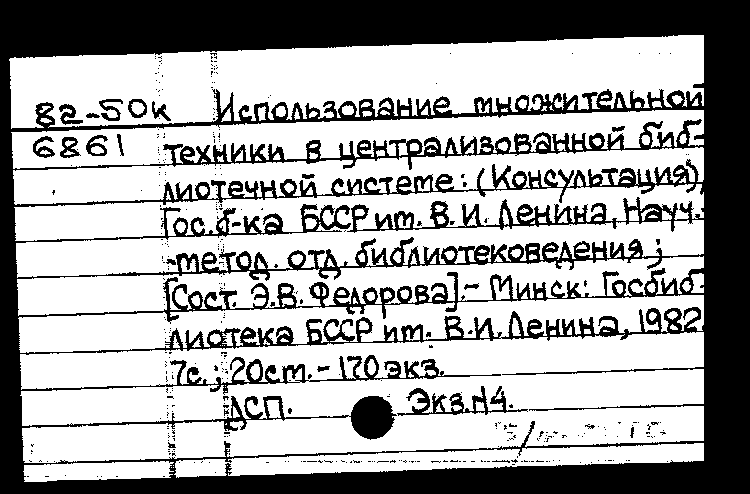 82-50к Использование множительной
6861 техники в централизованной биб-
лиотечной системе: (Консультация),
Гос. б-ка БССР им. В.И. Ленина, Науч.-
-метод. отд. библиотековедения;
[Сост. Э.В. Федорова].- Минск: Госбиб-
лиотека БССР им. В.И. Ленина, 1982.
7с.; 20cm. - 170 экз.
ДСП. Экз.N4.